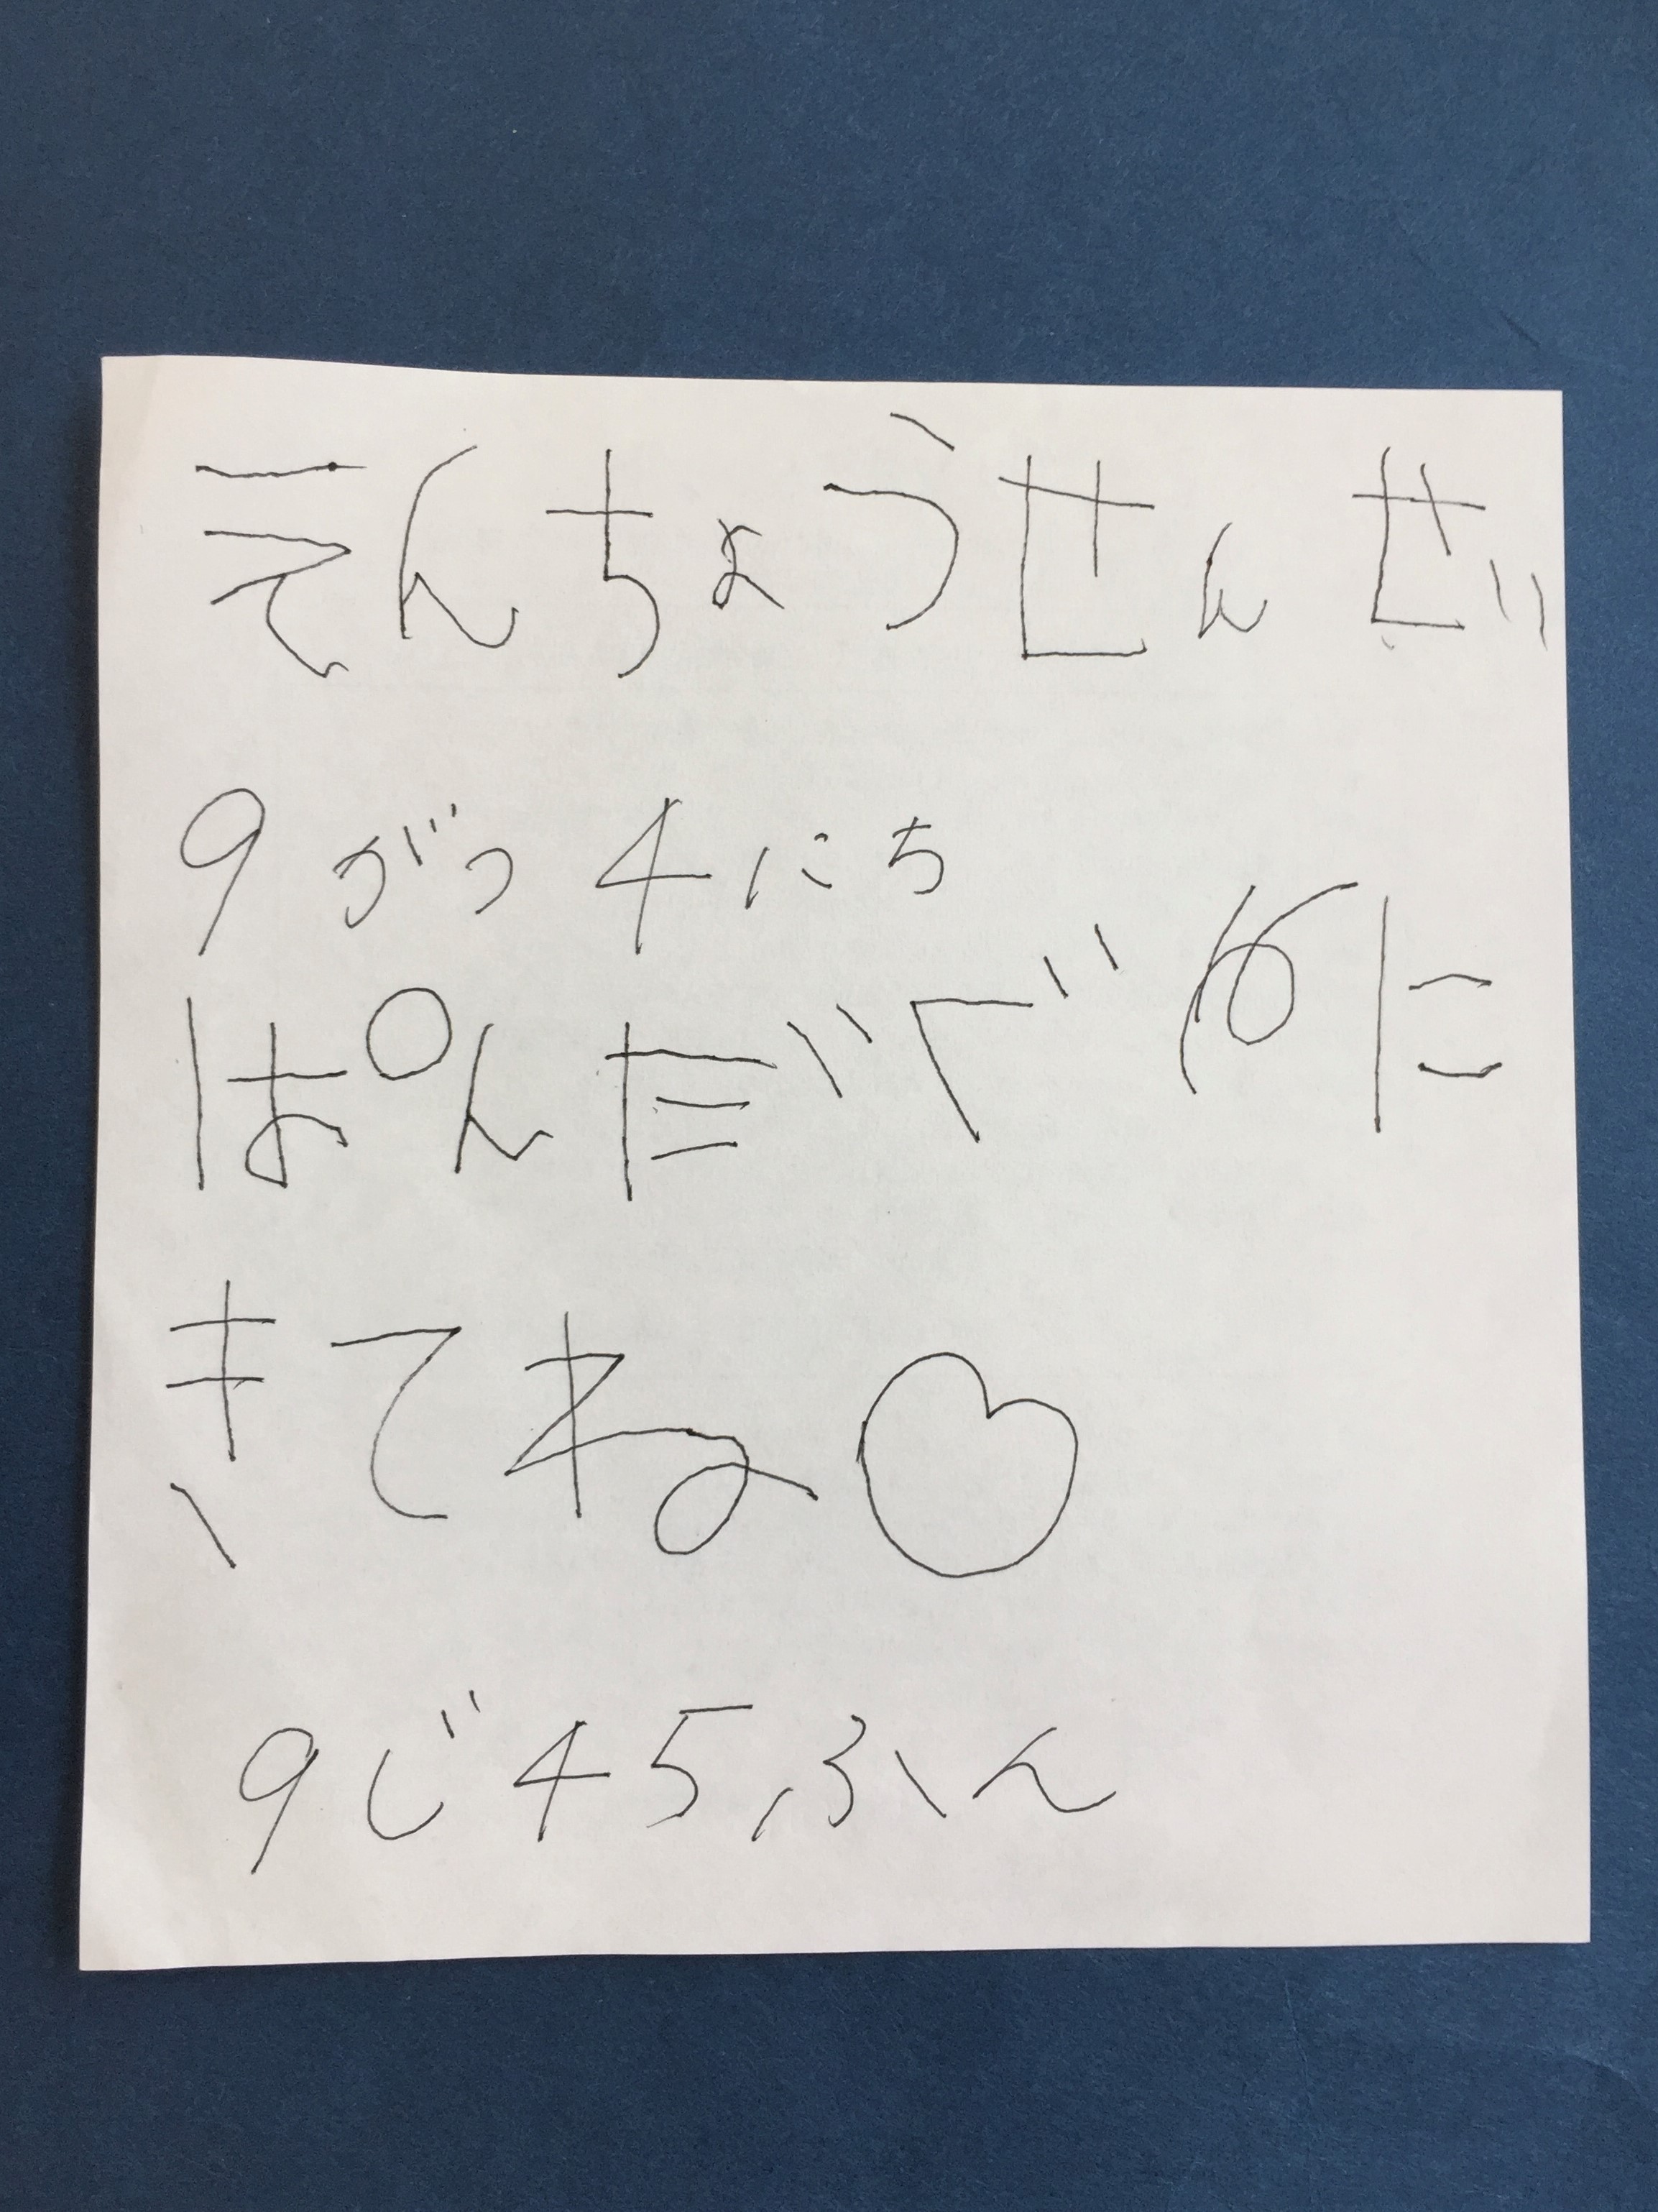 えんちょうせんせい
9がつ4にち
ぱんだぐみに
きてね♡
9じ45ふん